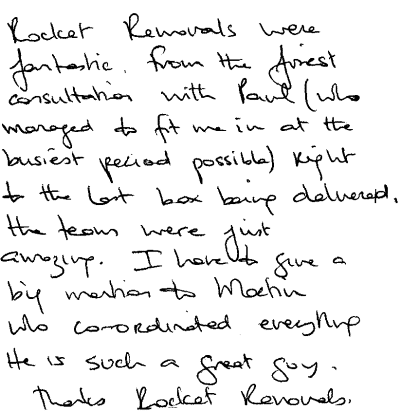 Rocket Removals were
fantastic, from the first
consultation with Paul (who
managed to fit me in at the
busiest period possible) right
to the last box being delivered,
the team were just
amazing. I have to give a
big mention to Martin
who co-ordinated everything
He is such a great guy.
Thanks Rocket Removals.